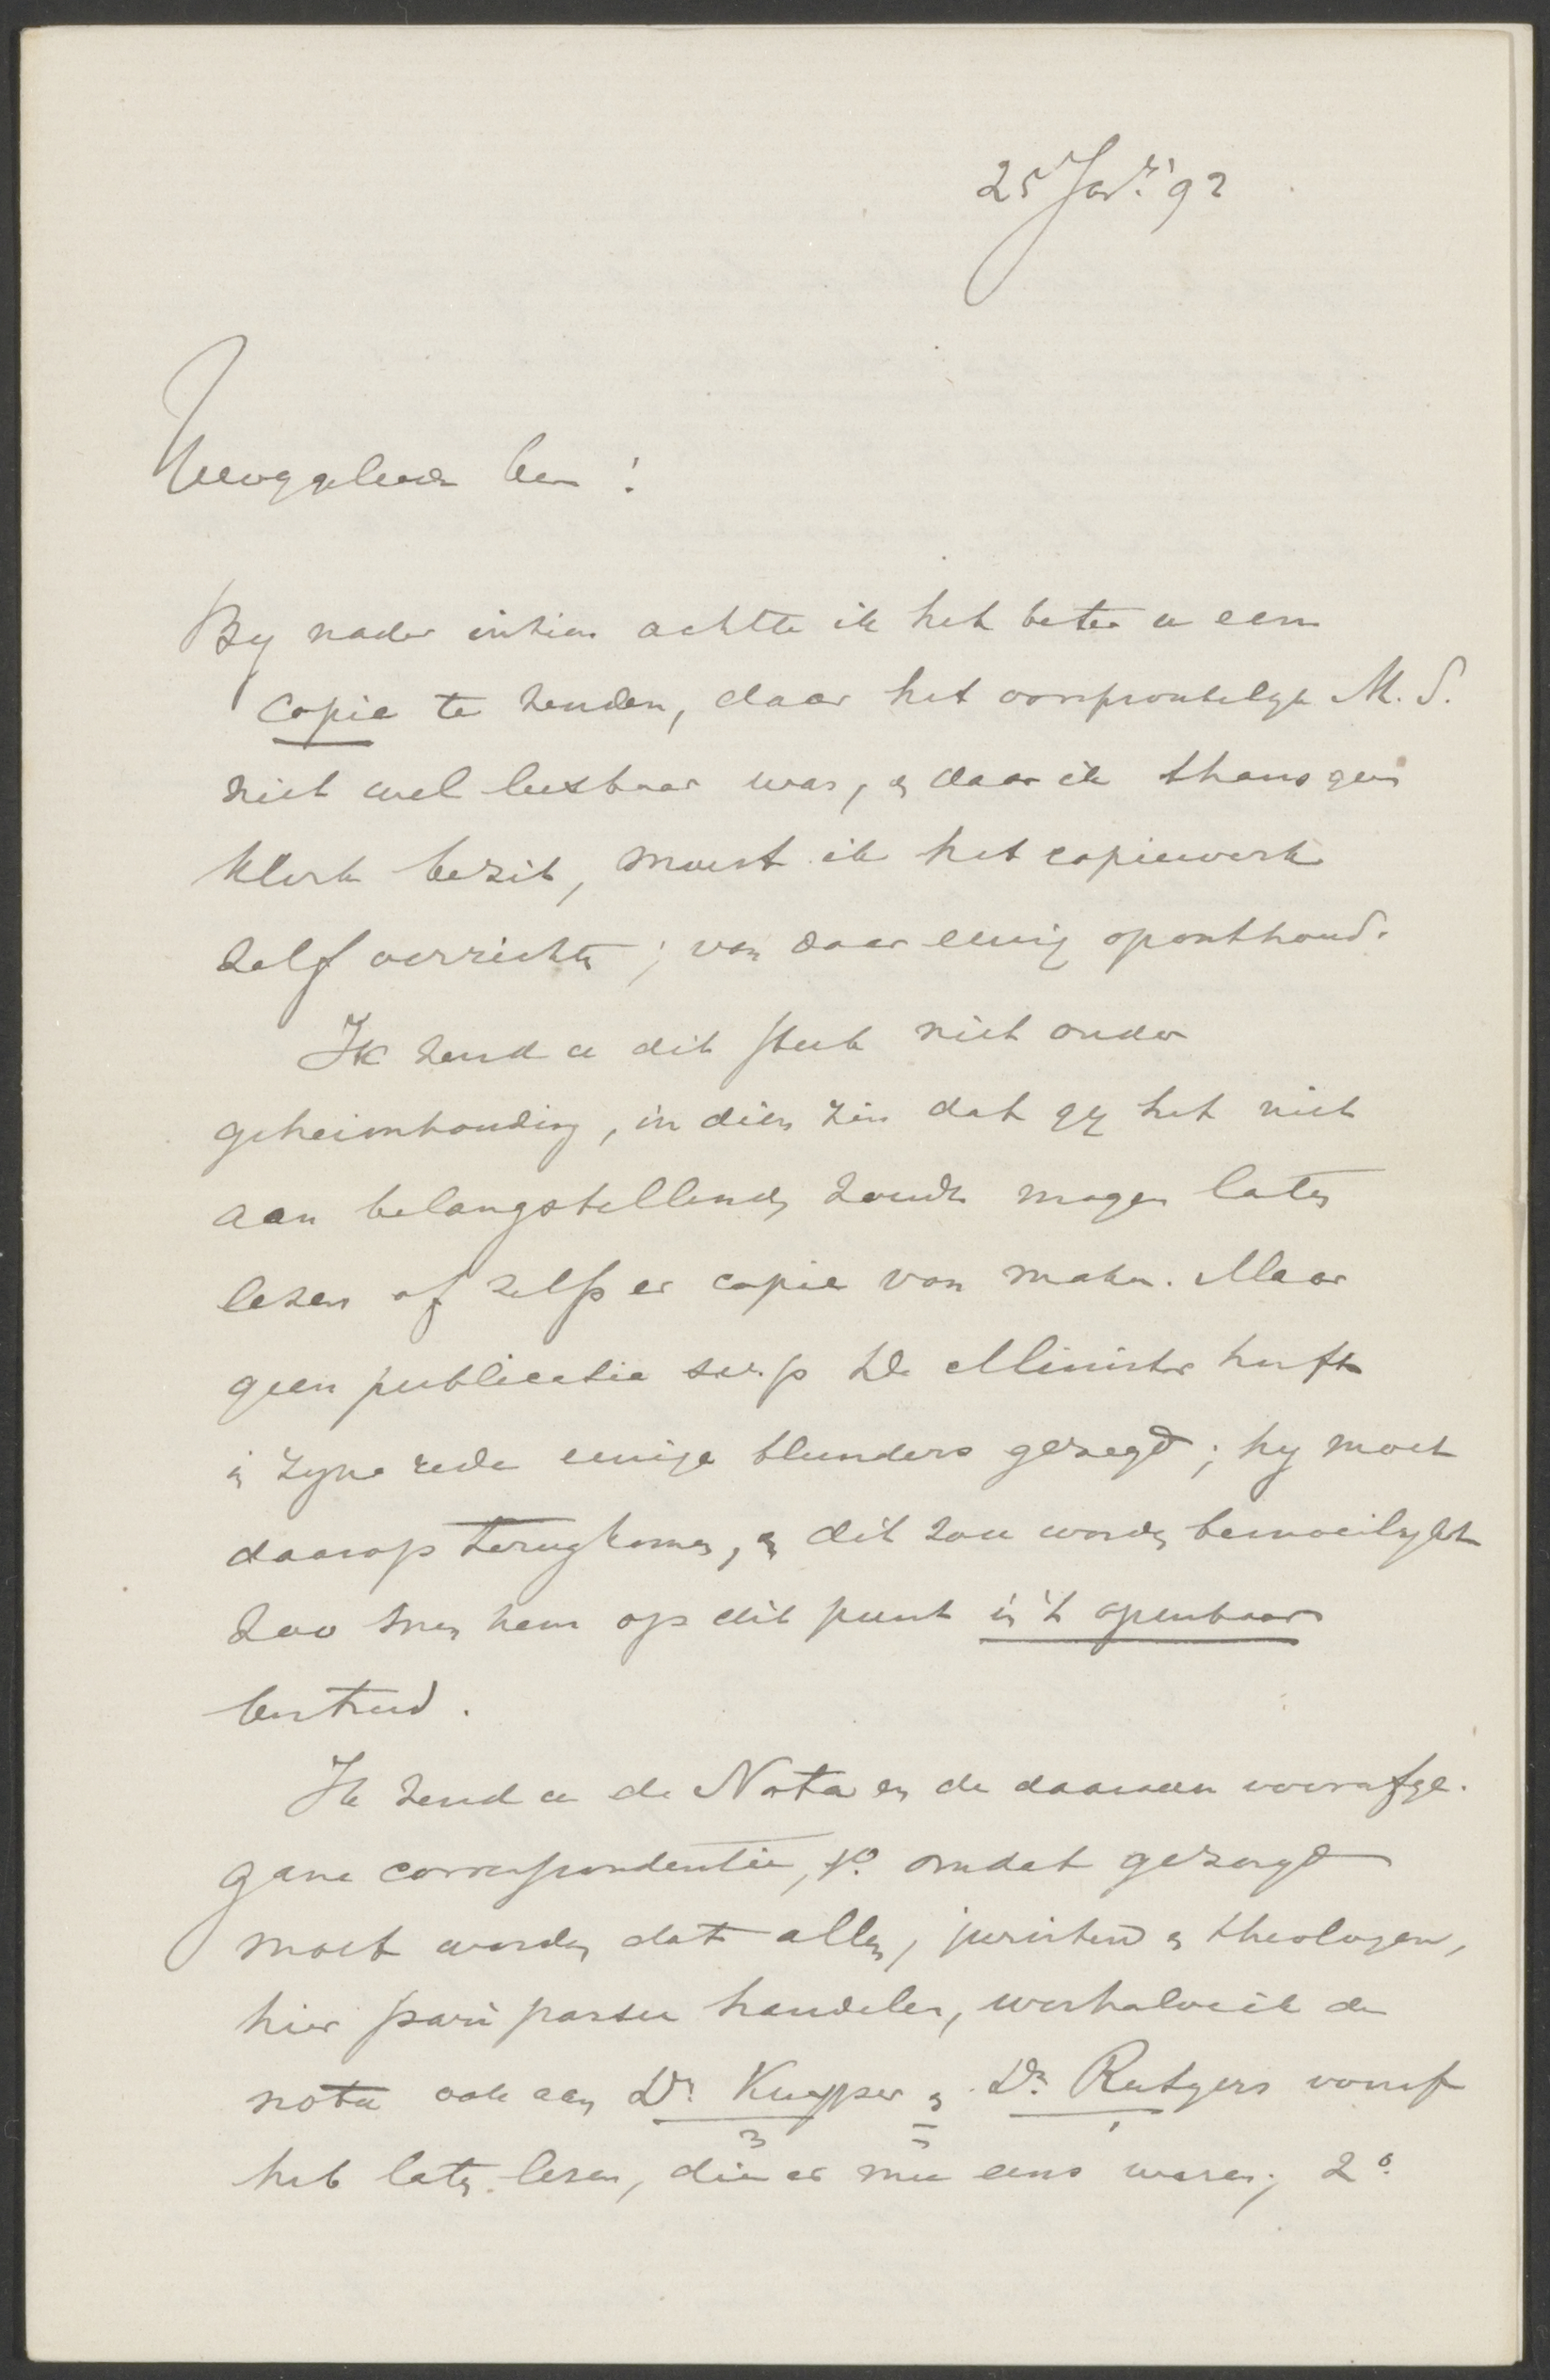 25 Jan. '92
Hooggeleerde Heer!
By nader inzien achtte ik het beter u een
copie te zenden, daar het oorspronkelyk M.S.
niet wel leesbaar was, en daar ik thans geen
klerk bezit, moest ik het copiewerk
zelf verrichten; van daar eenig oponthoud.
Ik zend u dit stuk niet onder
geheimhouding, in dien zin dat gy het niet
aan belangstellenden zoudt mogen laten
lezen of zelfs er copie van maken. Maar
geen publicatie s.v.p. De Minister heeft
in zyne rede eenige blunders gezegd; hy moet
daarop terugkomen, en dit zou worden bemoeilykt
zoo men hem op dit punt in 't openbaar
bestreed.
Ik zend u de Nota en de daaraan voorafge-
gane correspondentie, 1o. omdat gezorgd
moet worden dat allen, juristen en theologen,
hier pari passu handelen, weshalve ik de
nota ook aan Dr. Kuyper en Dr. Rutgers vooraf
heb laten lezen, die er mee eens waren; 2o.